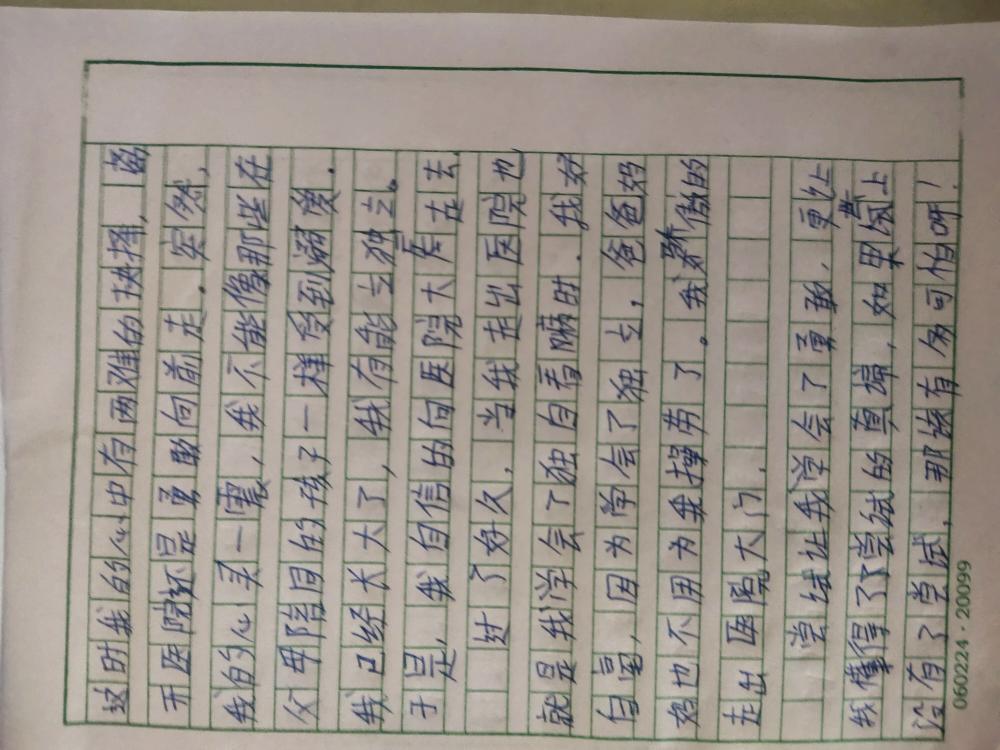 这时我的心中有两难的抉择，离
开医院还是勇敢向前走。突然，
我的心灵一震，我不能像那些在
父母陪同的孩子一样受到溺爱。
我已经长大了，我有能立独立。
于是，我自信的向医院大厅走去。
过了好久，当我走出医院也
就是我学会了独自看病时．我好
自豪，因为学会了独立，爸爸妈
妈也不用为我操劳了。我骄傲的
走出医院大门．
尝试让我学会了勇敢．更让
我懂得了尝试的真谛，如果黄冈上
没有了尝试，那该有多可怕呀！
060224·20099